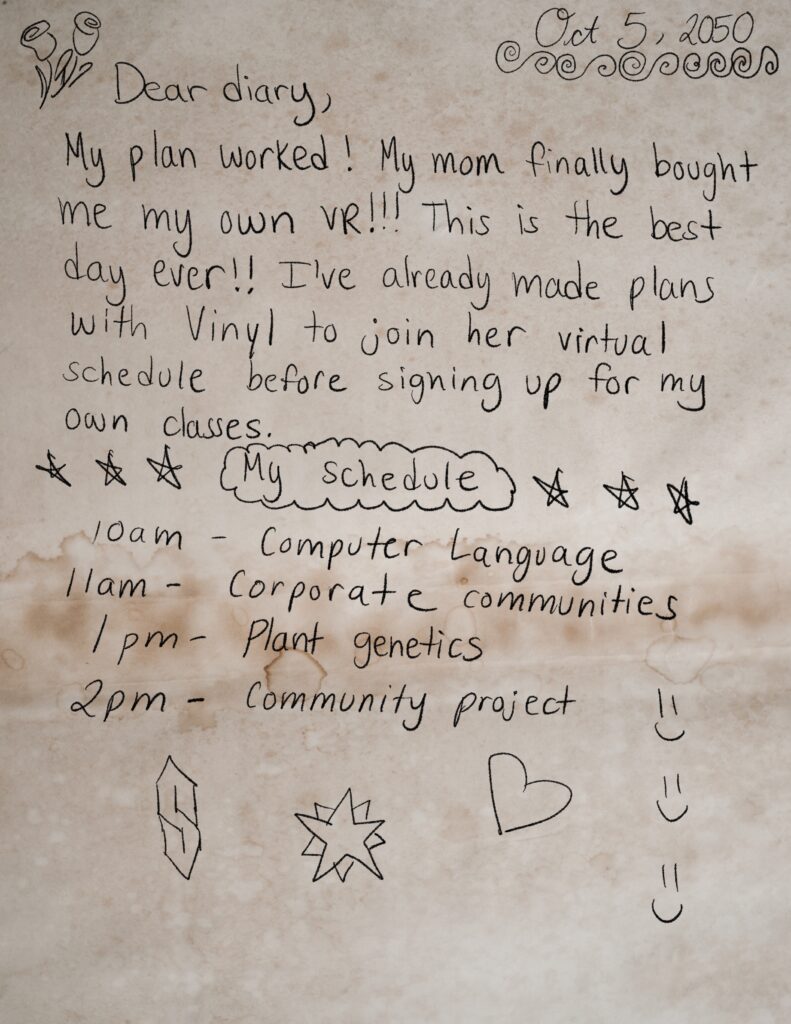 Oct 5, 2050
Dear diary,
My plan worked! My mom finally bought
me my own VR!!! This is the best
day ever!! I've already made plans
with Vinyl to join her virtual
schedule before signing up for my
own classes.
My Schedule
10am - Computer Language
11am - Corporate communities
1pm - Plant genetics
2pm - Community project